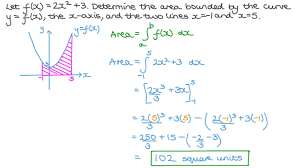 Let f(x) = 2x² + 3. Determine the area bounded by the curve
y = f(x), the x-axis, and the two lines x = -1 and x = 5.
y = f(x)
Area = ∫ f(x) dx
Area = ∫₋₁⁵ 2x² + 3 dx
= [2x³/3 + 3x]₋₁⁵
= 2(5)³/3 + 3(5) - (2(-1)³/3 + 3(-1))
= 250/3 + 15 - (-2/3 - 3)
= 102 square units
-1 5 x